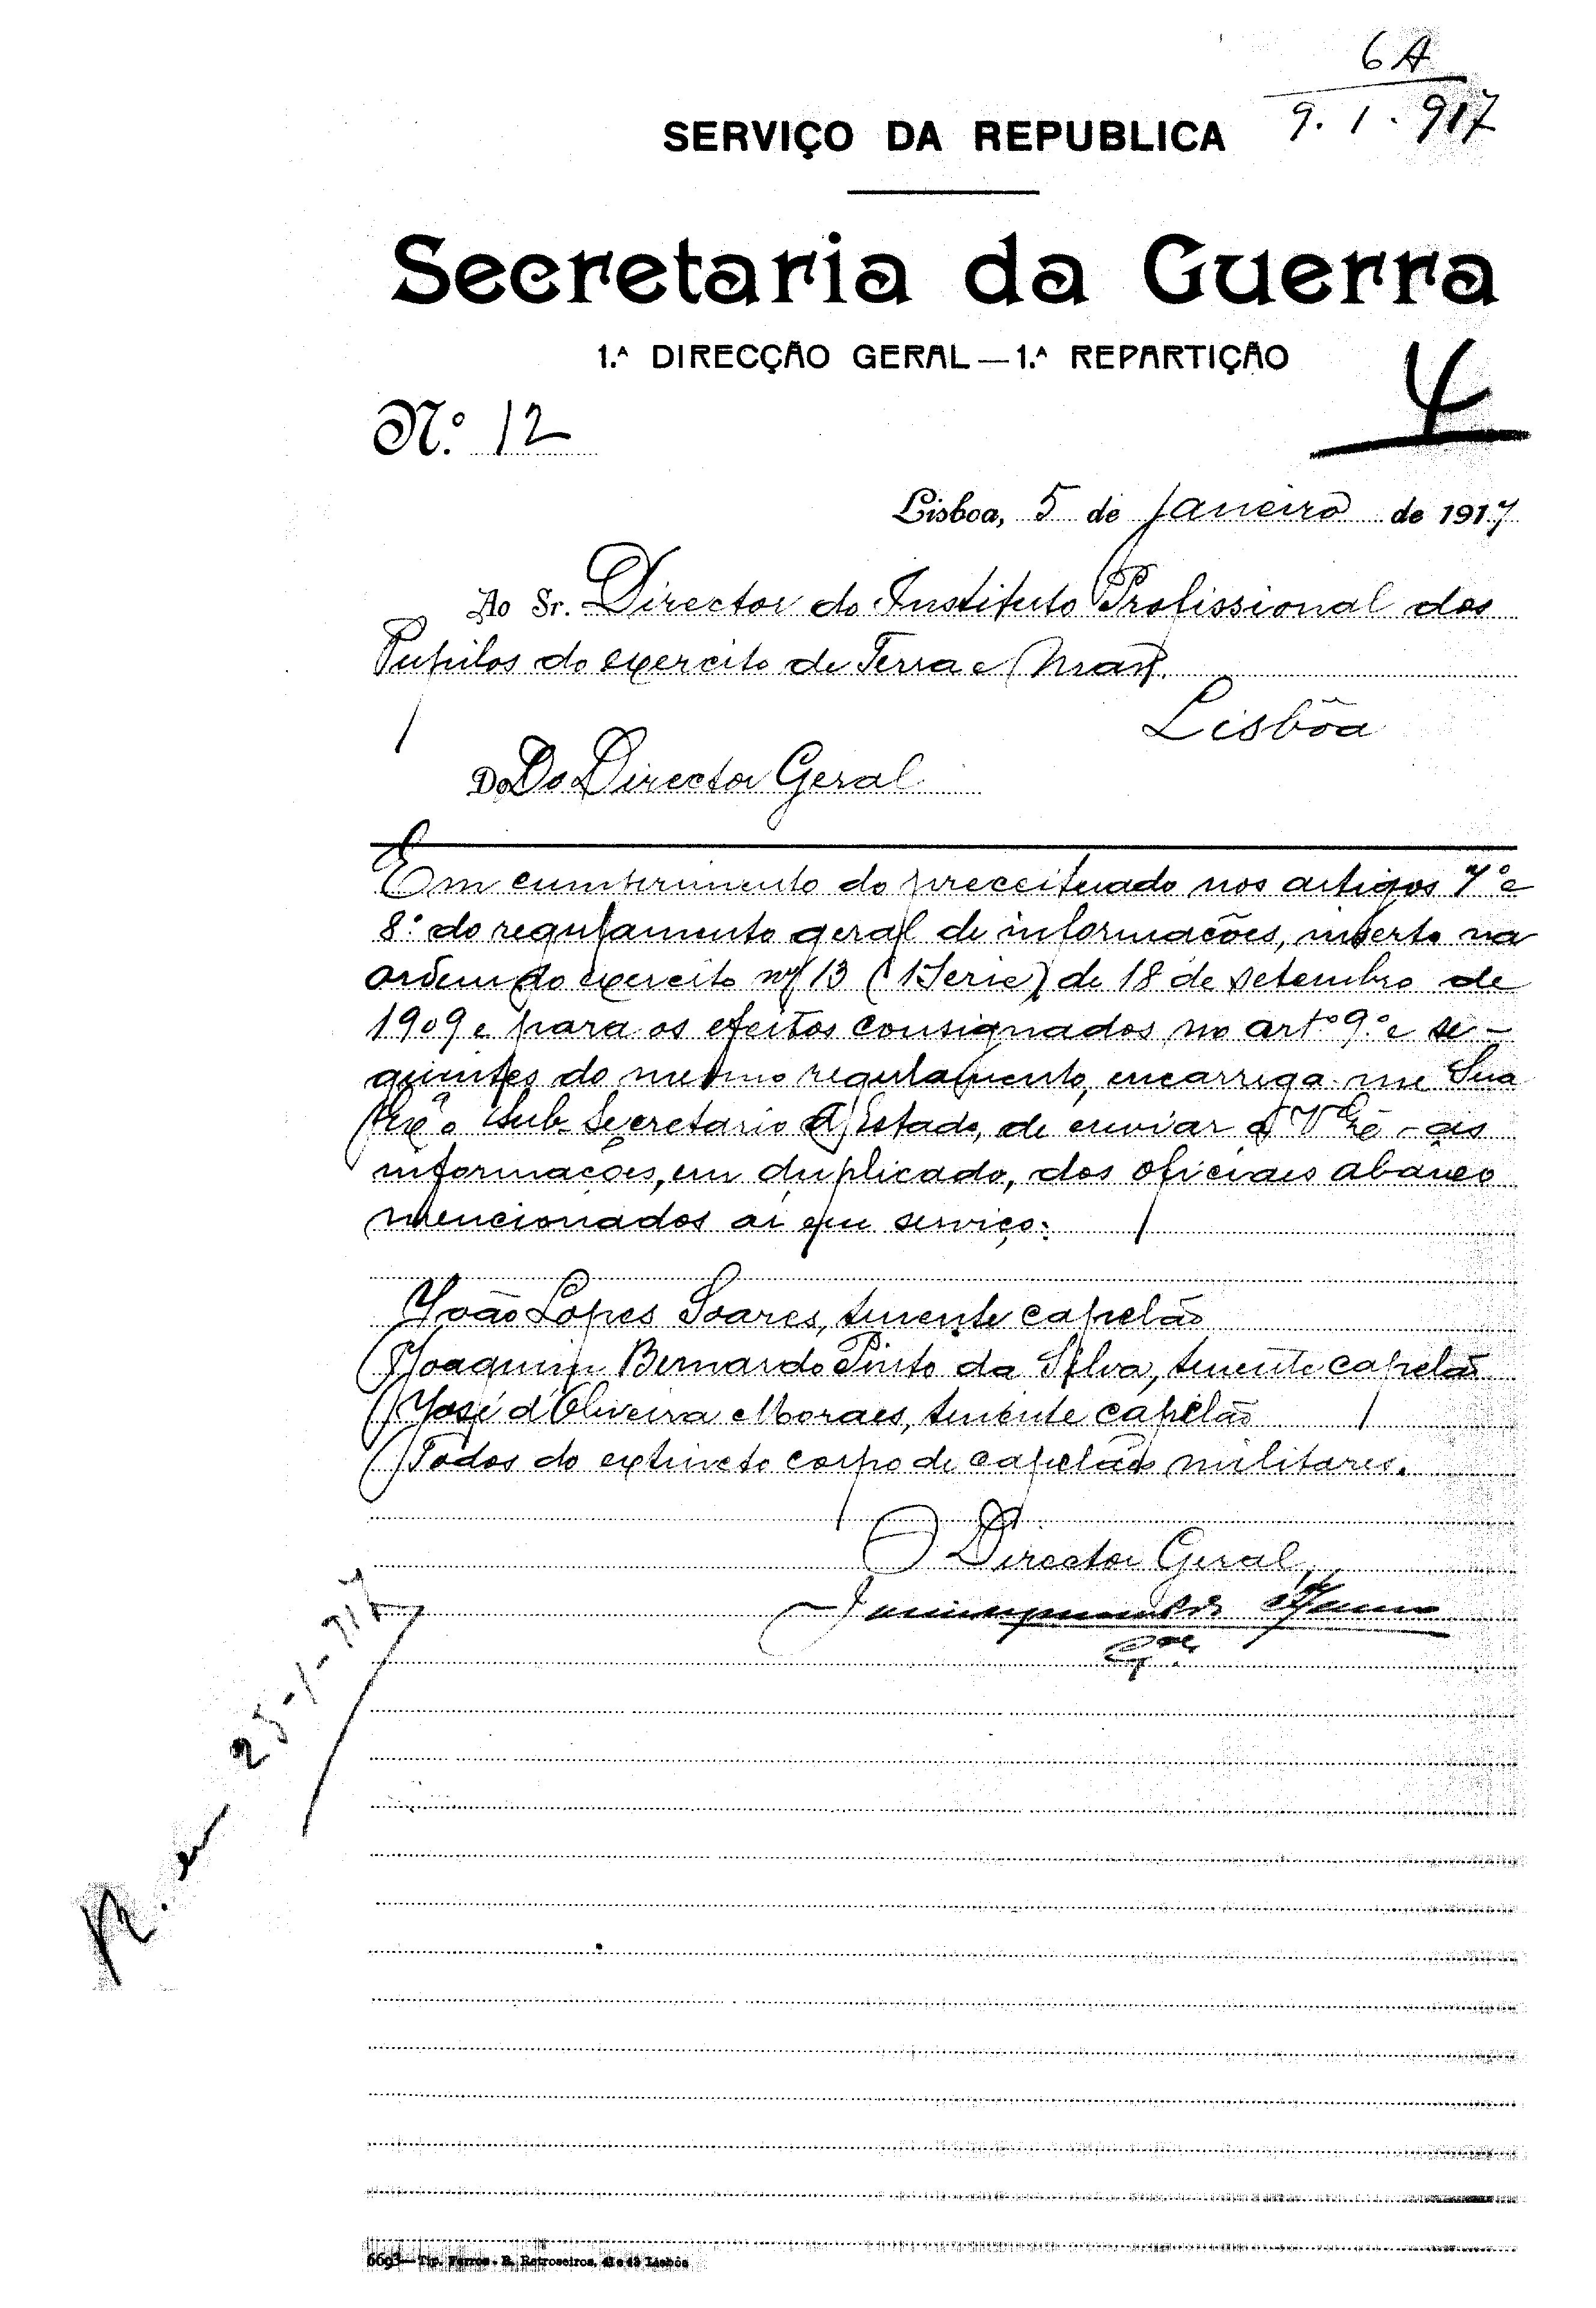 6A
9.1.917
SERVIÇO DA REPUBLICA
Secretaria da Guerra
1.ᴬ DIRECÇÃO GERAL — 1.ᴬ REPARTIÇÃO
4
N.º 12
Lisboa, 5 de Janeiro de 1917
Ao Sr. Director do Instituto Profissional dos
Pupilos do exercito de Terra e Mar.
Lisbõa
Do Do Director Geral
Em cumprimento do preceituado nos artigos 7º e
8.º do regulamento geral de informações, inserto na
ordem do exercito nº 13 (1 Serie) de 18 de setembro de
1909 e para os efeitos consignados no artº 9.º e se-
guintes do mesmo regulamento, encarrega-me Sua
Exª o Sub-Secretario d'Estado, de enviar a V Exª as
informações, em duplicado, dos oficiaes abaixo
mencionados aí em serviço:
João Lopes Soares, tenente capelão
Joaquim Bernardo Pinto da Silva, tenente capelão
José d'Oliveira Moraes, tenente capelão
Todos do extincto corpo de capelães militares.
O Director Geral,
Gal
R. em 25-1-917
6693—Tip. Ferros - R. Retroseiros, 41 e 43 Lisbôa